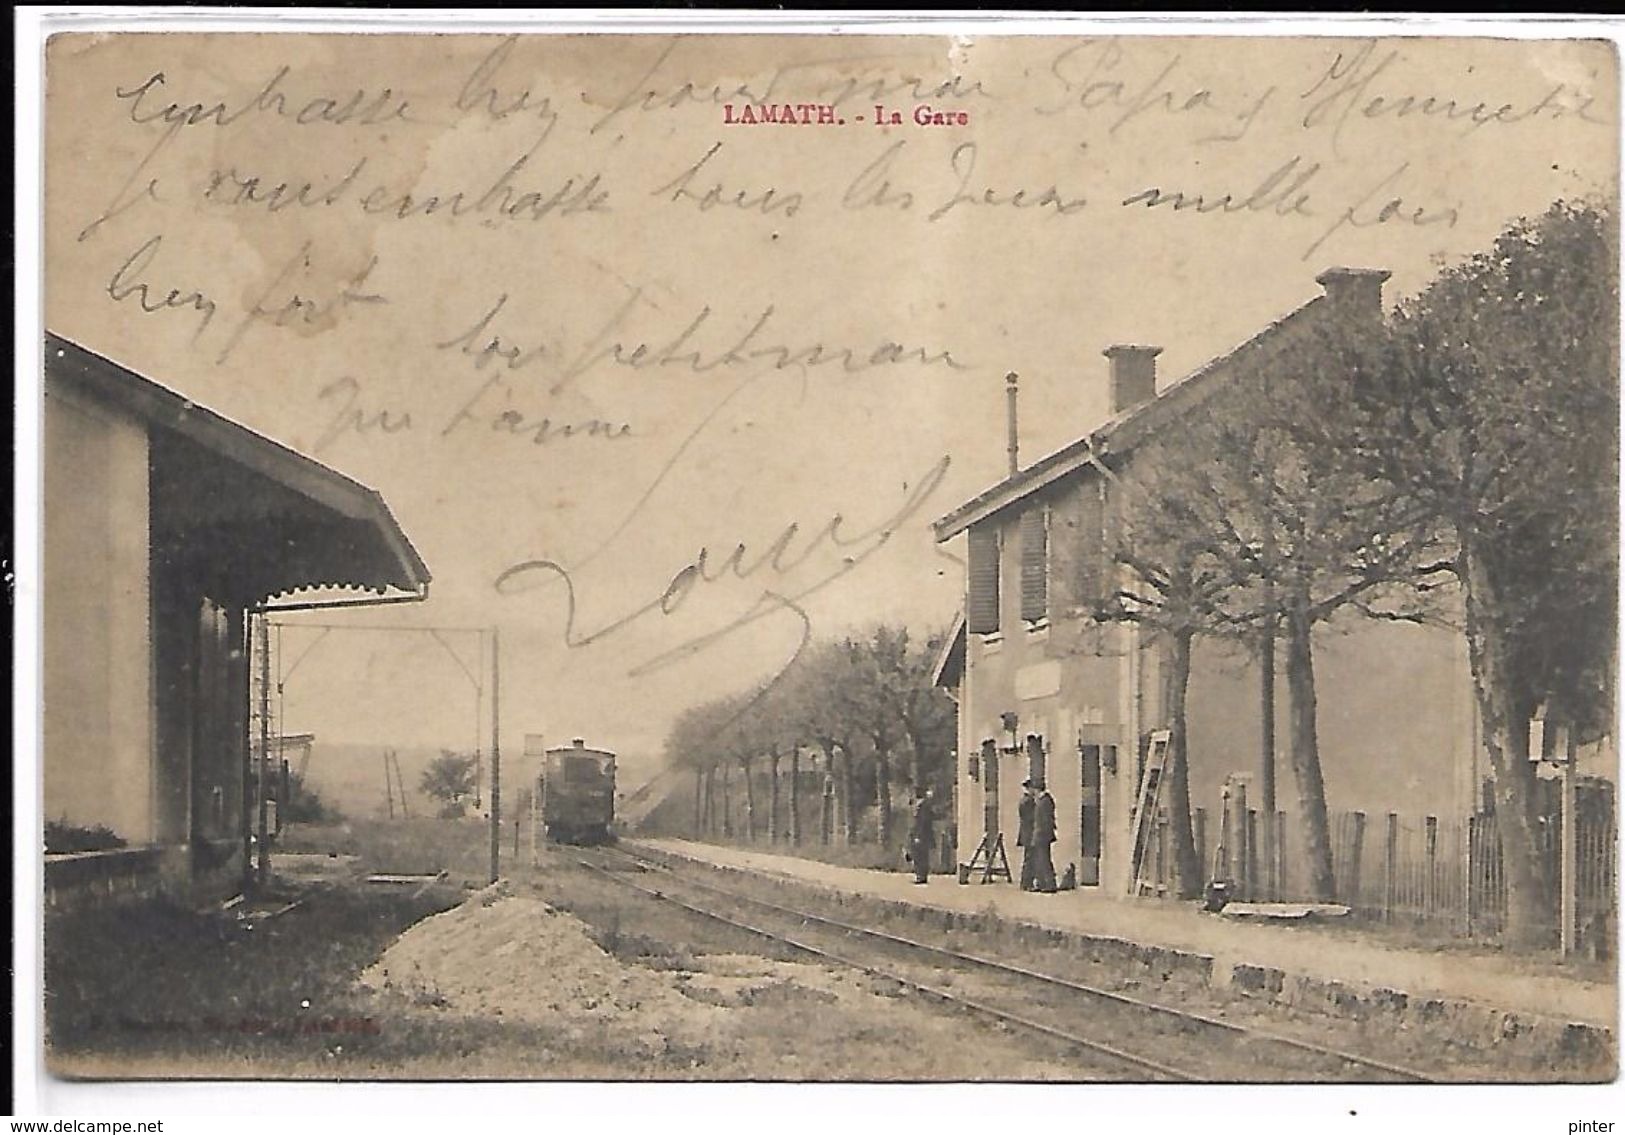 Embrasse bien pour moi Papa, Henriette
LAMATH. - La Gare
Je vous embrasse tous les deux mille fois
bien fort
ton petit mari
qui t'aime
Louis
www.delcampe.net
pinter